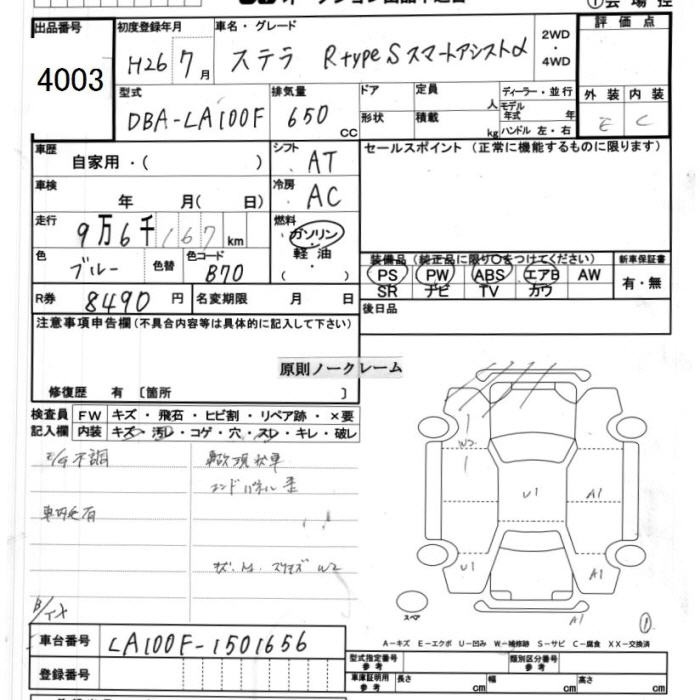 出品番号
4003
初度登録年月
H26 7月
車名・グレード
ステラ RtypeSスマートアシストα
2WD
・
4WD
評価点
外装 内装
E C
型式
DBA-LA100F
排気量
650 cc
ドア
形状
定員 人
積載 kg
ディーラー・並行
モデル年式 年
ハンドル 左・右
車歴
自家用・( )
シフト
AT
セールスポイント(正常に機能するものに限ります)
車検
年 月(日)
冷房
AC
走行
9万6千167km
燃料
ガソリン
・
軽油
・
( )
色
ブルー
色替
色コード
B70
装備品(純正品に限り○をつけてください)
PS PW ABS エアB AW
SR ナビ TV カワ
新車保証書
有・無
R券 8490円
名変期限 月 日
後日品
注意事項申告欄(不具合内容等は具体的に記入して下さい)
原則ノークレーム
修復歴 有〔箇所 〕
検査員記入欄
FW キズ・飛石・ヒビ割・リペア跡・×要
内装 キズ・汚レ・コゲ・穴・スレ・キレ・破レ
不調
車内毛有
エンドパネル歪
W2
W2
U1
A1
U1
A1
A1
スペア
①
A-キズ E-エクボ U-凹み W-補修跡 S-サビ C-腐食 XX-交換済
車台番号
LA100F-1501656
登録番号
型式指定番号
参考
類別区分番号
参考
車庫証明用
参考
長さ cm
幅 cm
高さ cm